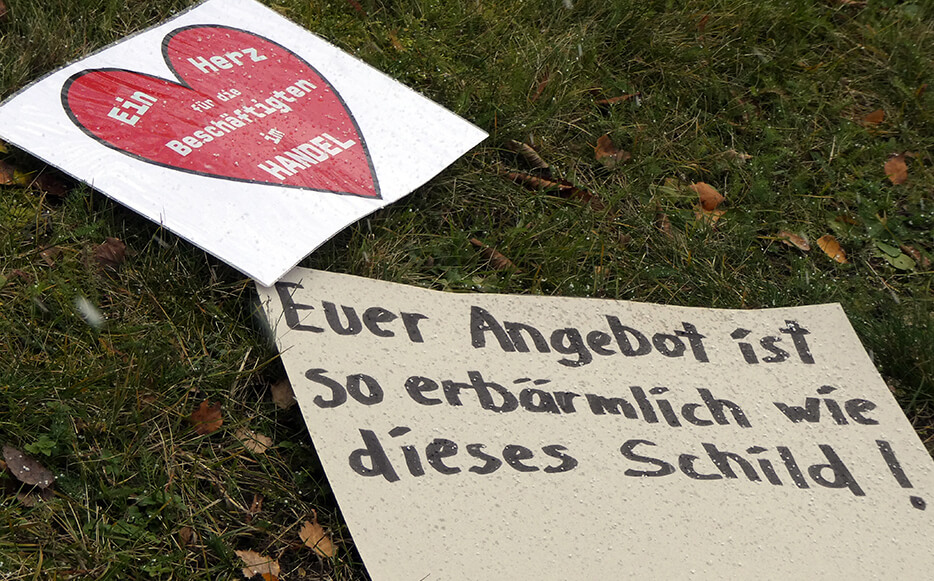 Ein Herz
für die
Beschäftigten
im
HANDEL
Euer Angebot ist
so erbärmlich wie
dieses Schild!